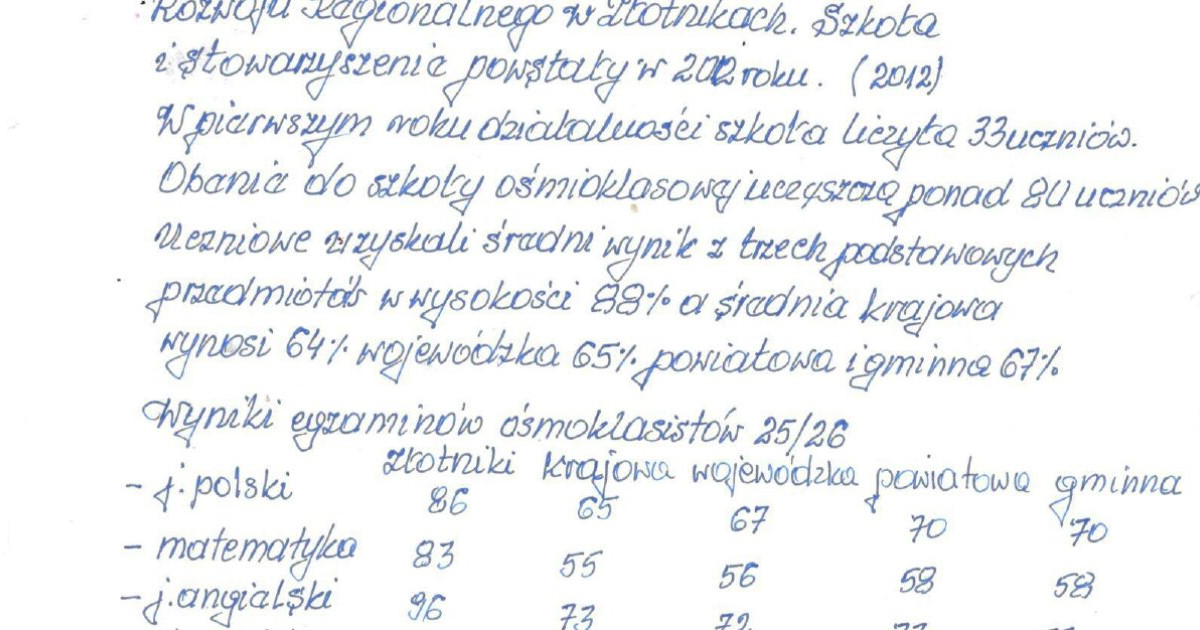 Rozwoju Regionalnego w Złotnikach. Szkoła
i Stowarzyszenie powstały w 2012 roku. (2012)
W pierwszym roku działalności szkoła liczyła 33 uczniów.
Obecnie do szkoły ośmioklasowej uczęszcza ponad 80 uczniów
Uczniowie uzyskali średni wynik z trzech podstawowych
przedmiotów w wysokości 88% a średnia krajowa
wynosi 64% wojewódzka 65% powiatowa i gminna 67%
Wyniki egzaminów ósmoklasistów 25/26
złotniki krajowa wojewódzka powiatowa gminna
- j. polski 86 65 67 70 70
- matematyka 83 55 56 58 58
- j. angielski 96 73 72